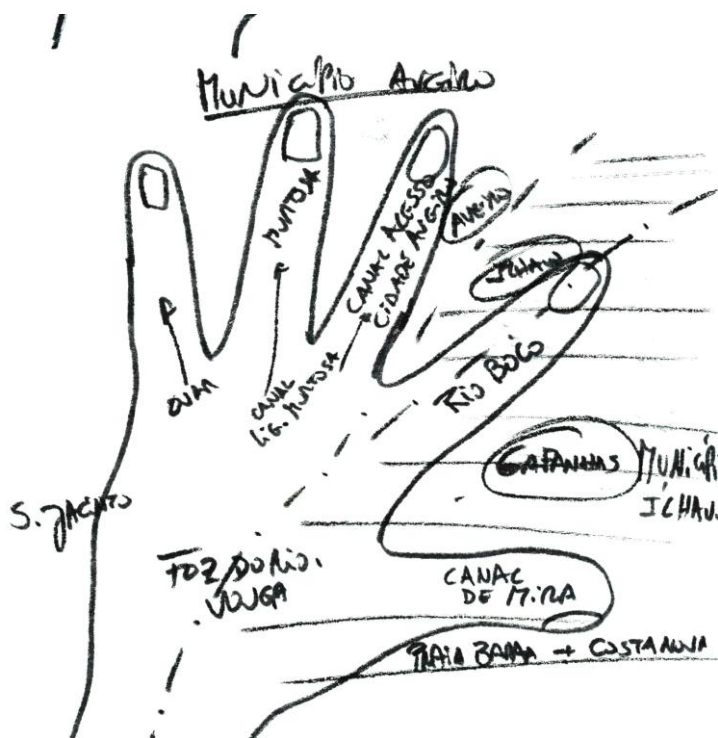 MUNICÍPIO AVEIRO
MURTOSA
CANAL ACESSO
CIDADE AVEIRO
AVEIRO
ILHAVO
RIO BOCO
OVAR
CANAL
LIG. MURTOSA
GAFANHAS
MUNICÍP
ILHAV
S. JACINTO
FOZ DO RIO
VOUGA
CANAL
DE MIRA
PRAIA BARRA → COSTA NOVA